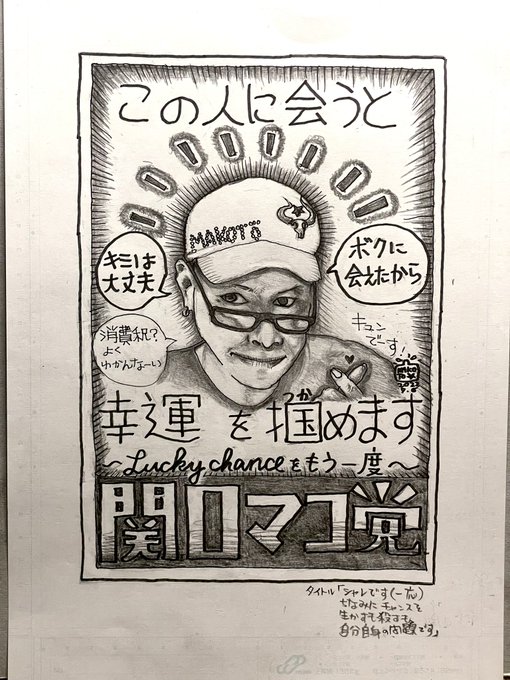 この人に会うと
MAKOTO
キミは
大丈夫
ボクに
会えたから
消費税?
よく
わかんなーい
キュン
です!
つか
幸運を掴めます
〜Lucky chanceをもう一度〜
関口マコ党
タイトル「シャレです(一応)
ちなみにチャンスを
生かすも殺すも
自分自身の問題です」